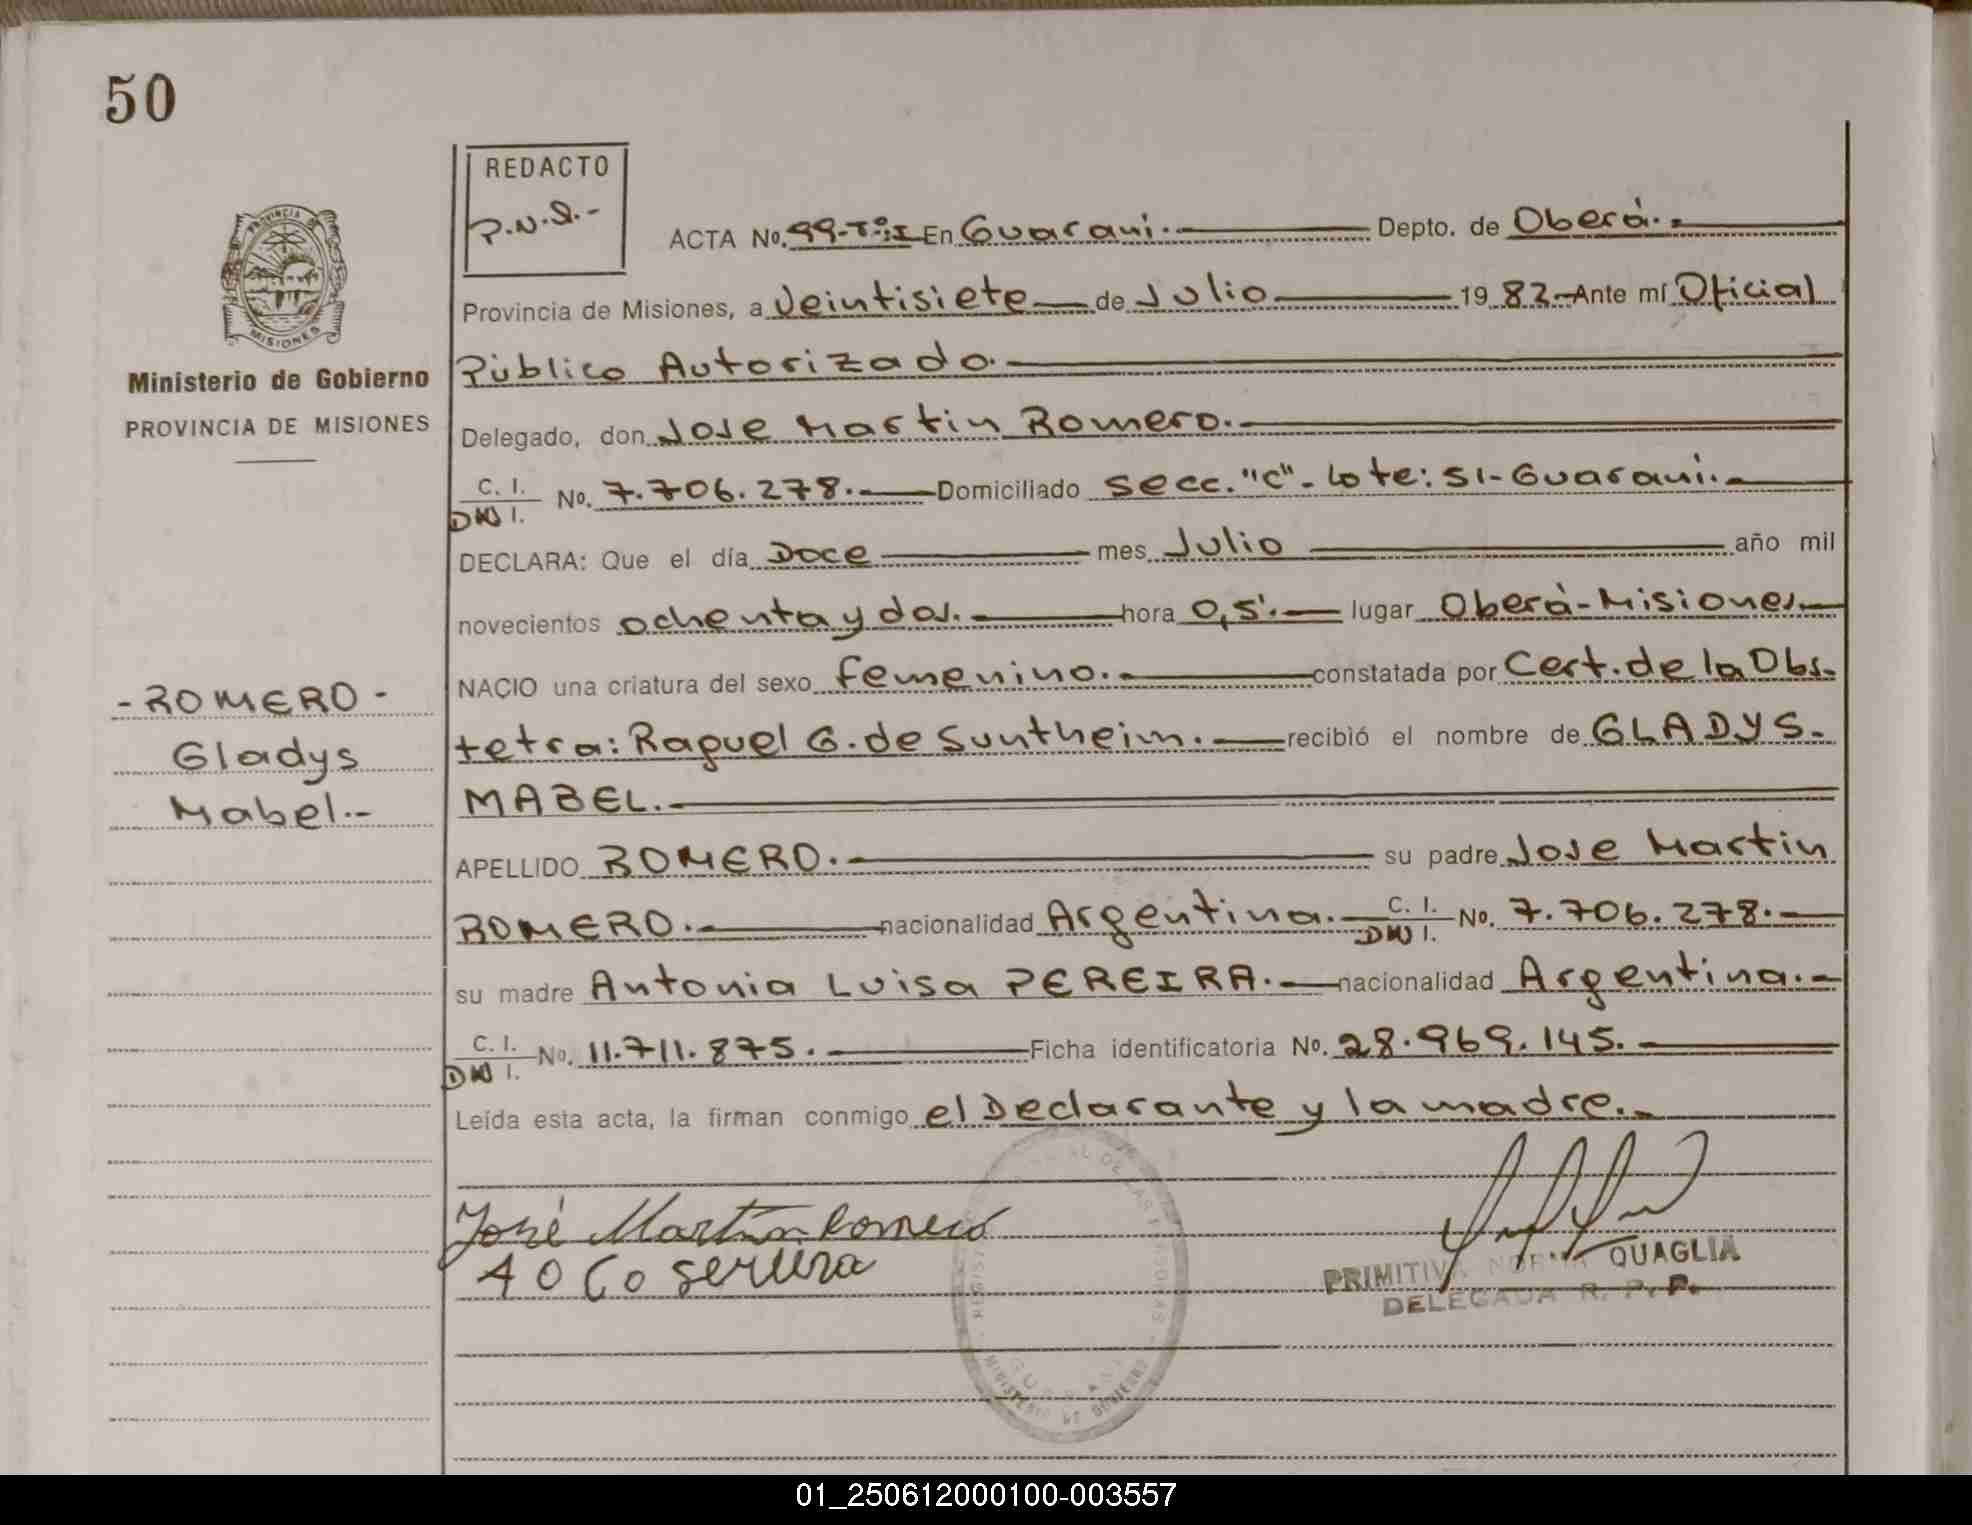 50
REDACTO
P.N.Q.-
PROVINCIA DE
MISIONES
Ministerio de Gobierno
PROVINCIA DE MISIONES
- ROMERO -
Gladys
Mabel.-
ACTA No. 99-Tº:I En Guarani. Depto. de Oberá.
Provincia de Misiones, a Veintisiete de Julio 19 82.- Ante mí Oficial
Público Autorizado.
Delegado, don Jose Martin Romero.
C. I. DNI I. No. 7.706.278. Domiciliado Secc. "C"- Lote: 51- Guarani.-
DECLARA: Que el día Doce mes Julio año mil
novecientos ochenta y dos. hora 0,5'. lugar Oberá-Misiones.-
NACIO una criatura del sexo femenino. constatada por Cert. de la Obs-
tetra: Raquel G. de Suntheim. recibió el nombre de GLADYS-
MABEL.
APELLIDO ROMERO. su padre Jose Martin
ROMERO. nacionalidad Argentina. C. I. DNI I. No. 7.706.278.-
su madre Antonia Luisa PEREIRA. nacionalidad Argentina.-
C. I. DNI I. No. 11.711.875. Ficha identificatoria No. 28.969.145.
Leída esta acta, la firman conmigo el Declarante y la madre.-
José Martín Romero
PRIMITIVA NORMA QUAGLIA
DELEGADA R. P. P.
MINISTERIO DE GOBIERNO
01_250612000100-003557